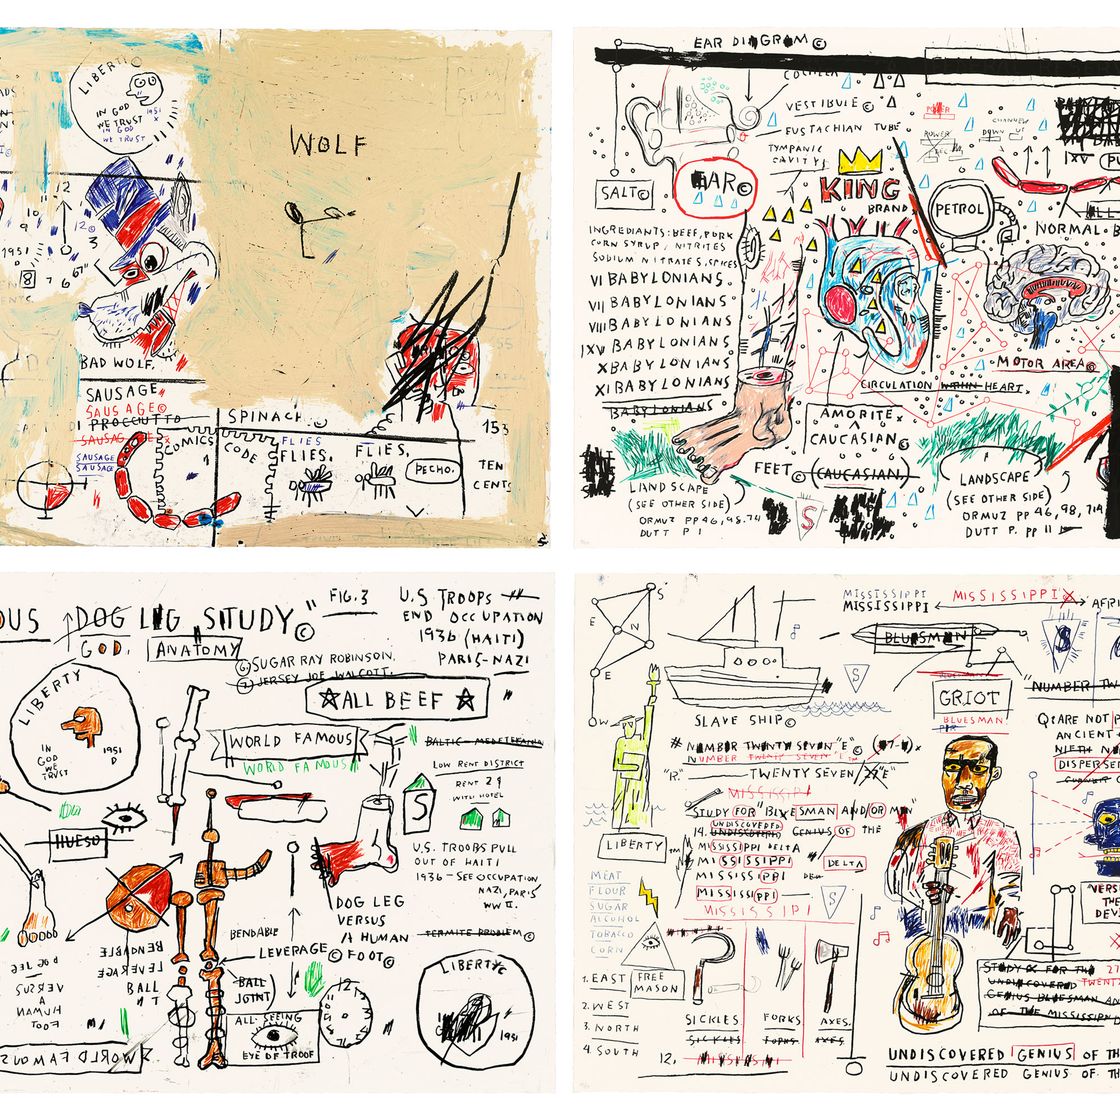 LIBERTY
IN GOD
WE TRUST
IN GOD
WE TRUST
1951
WOLF
12
10
9
3
1951
8
7
6
BAD WOLF.
SAUSAGE
SAUSAGE©
PROCCUTTO
SAUSAGE
SAUSAGE
SAUSAGE
COMICS
CODE
SPINACH.
FLIES
FLIES.
FLIES.
PECHO.
153
TEN
CENTS
EAR DIAGRAM©
COCHLEA
VESTIBULE©
EUSTACHIAN TUBE
TYMPANIC
CAVITY
SALT©
EAR©
KING
BRAND
POWER
POWER
DOWN
PETROL
IXV
NORMAL B
INGREDIANTS: BEEF, PORK
CORN SYRUP, NITRITES
SODIUM NITRATES, SPICES
VI BABYLONIANS.
VII BABYLONIANS
VIII BABYLONIANS
IXV BABYLONIANS
X BABYLONIANS
XI BABYLONIANS
BABYLONIANS
MOTOR AREA©
CIRCULATION WITHIN HEART
AMORITE
CAUCASIAN©
FEET © (CAUCASIAN)
LANDSCAPE
(SEE OTHER SIDE)
ORMUZ PP 46, 98, 714
DUTT P 1
S
LANDSCAPE
(SEE OTHER SIDE)
ORMUZ PP 46, 98, 714
DUTT P. PP 11
OUS DOG LEG STUDY"©
GOD.
ANATOMY
FIG. 3
U.S TROOPS
END OCCUPATION
1936 (HAITI)
PARIS-NAZI
⑥ SUGAR RAY ROBINSON.
⑦ JERSEY JOE WALCOTT.
ALL BEEF
LIBERTY
IN
GOD
WE
TRUST
1951
D
WORLD FAMOUS
WORLD FAMOUS
LOW RENT DISTRICT
RENT 29
WITH HOTEL
S
HUESO
U.S. TROOPS PULL
OUT OF HAITI
1936 - SEE OCCUPATION
NAZI, PARIS
WW II.
DOG LEG
VERSUS
A HUMAN
FOOT©
TERMITE PROBLEM©
BENDABLE
LEVERAGE©
BALL
JOINT
BENDABLE
LEVERAGE
BALL
DOG LEG
VERSUS
A
HUMAN
FOOT
12
ALL-SEEING
EYE OF TROOF
LIBERTY©
1951
WORLD FAMOUS
S
E
N
E
W
MISSISSIPPI
MISSISSIPPI
MISSISSIPPI
AFRI
BLUESMAN
S
S
SLAVE SHIP©
GRIOT
BLUESMAN
"NUMBER TW
Q: ARE NOT
ANCIENT
NINTH
DISPERSE
# NUMBER TWENTY SEVEN "E"©
NUMBER TWENTY SEVEN "E"
"R." TWENTY SEVEN "E"
MISSISSIPPI
STUDY FOR BLUESMAN AND/OR MAN
14. UNDISCOVERED GENIUS OF THE
UNDISCOVERED
MISSISSIPPI DELTA
MISSISSIPPI DELTA
MISSISSIPPI
MISSISSIPPI
MISSISSIPPI
LIBERTY™
MEAT
FLOUR
SUGAR
ALCOHOL
TOBACCO
CORN
S
1. EAST
2. WEST
3. NORTH
4. SOUTH
FREE
MASON
SICKLES
SICKLES
FORKS
FORKS
AXES.
AXES
12.
MISSISSIPPI
"VERS
THE
DEVI
STUDY FOR THE
UNDISCOVERED TWENTY
GENIUS BLUESMAN AND
OF THE MISSISSIPPI D
UNDISCOVERED GENIUS OF TH
UNDISCOVERED GENIUS OF. TH